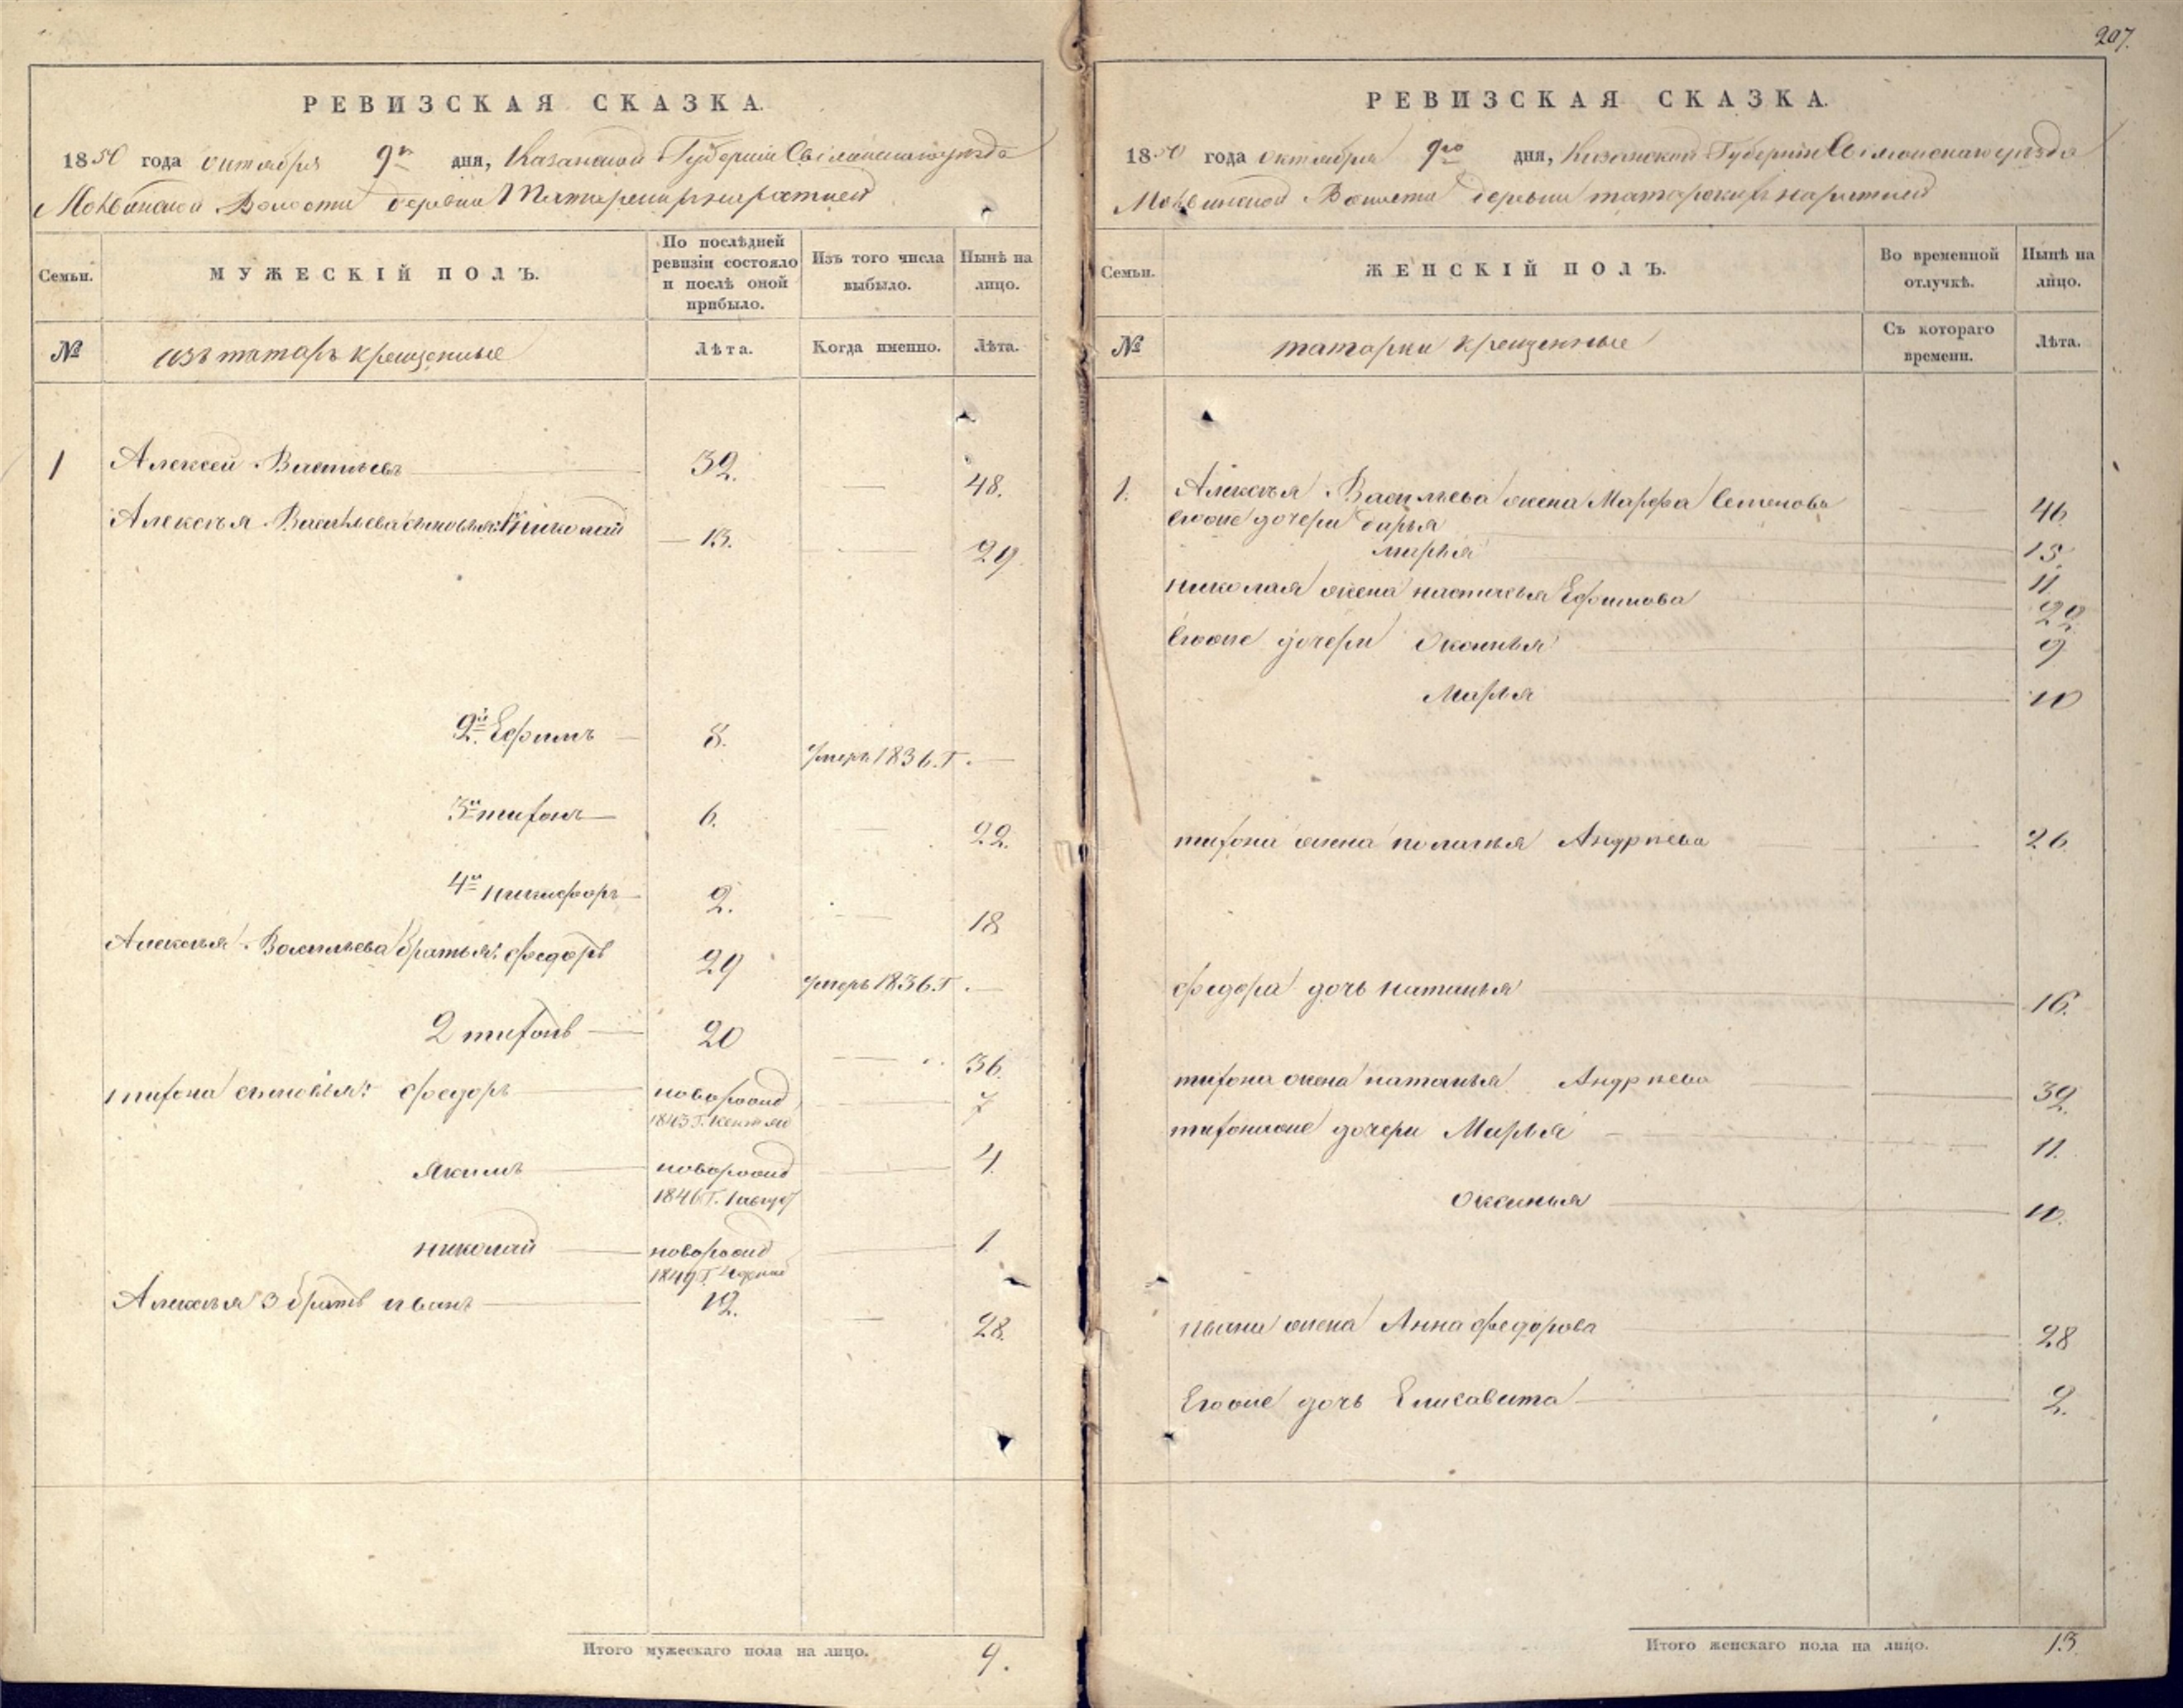 207.
РЕВИЗСКАЯ СКАЗКА.
1850 года октября 9го дня, Казанской Губернии Свіяжскаго уѣзда
Волости деревни
Семьи.
МУЖЕСКІЙ ПОЛЪ.
По послѣдней ревизіи состояло и послѣ оной прибыло.
Изъ того числа выбыло.
Нынѣ на лицо.
№
изъ татаръ крещенные
Лѣта.
Когда именно.
Лѣта.
1 Алексей Васильевъ 32. — 48.
Алексѣя Васильева сыновья: 1й Николай — 13. — 29.
2й Ефимъ — 8. умеръ 1836. Г. —
3й тифонъ — 6. — 22.
4й никифоръ — 2. — 18
Алексѣя Васильева братья: федоръ 29 умеръ 1836. Г. —
2 тифонъ — 20 — 36.
тифона сыновья: федоръ — новорожд — 7
1843 Г.
якимъ — новорожд — 4.
1846 Г. 1 август
николай — новорожд — 1.
1849 Г.
Алексѣя 3 братъ иванъ — 12. — 28.
Итого мужескаго пола на лицо. 9.
РЕВИЗСКАЯ СКАЗКА.
1850 года октября 9го дня, Казанской Губерніи Свіяжскаго уѣзда
Волости деревни
Семьи.
ЖЕНСКІЙ ПОЛЪ.
Во временной отлучкѣ.
Нынѣ на лицо.
№
татарки крещенные
Съ котораго времени.
Лѣта.
1. Алексѣя Васильева жена Марфа Семенова — 46.
Егоже дочери дарья — 15.
марья — 11.
николая жена настасья Ефимова — 29.
Егоже дочери Оксинья — 9
Марья — 10
тифона жена Андрѣева — 26.
федора дочь наталья — 16.
тифона жена наталья Андрѣева — 32.
тифонаже дочери Марья — 11.
Оксинья — 10.
ивана жена Анна федорова — 28
Егоже дочь Елисавета — 2.
Итого женскаго пола на лицо. 13.